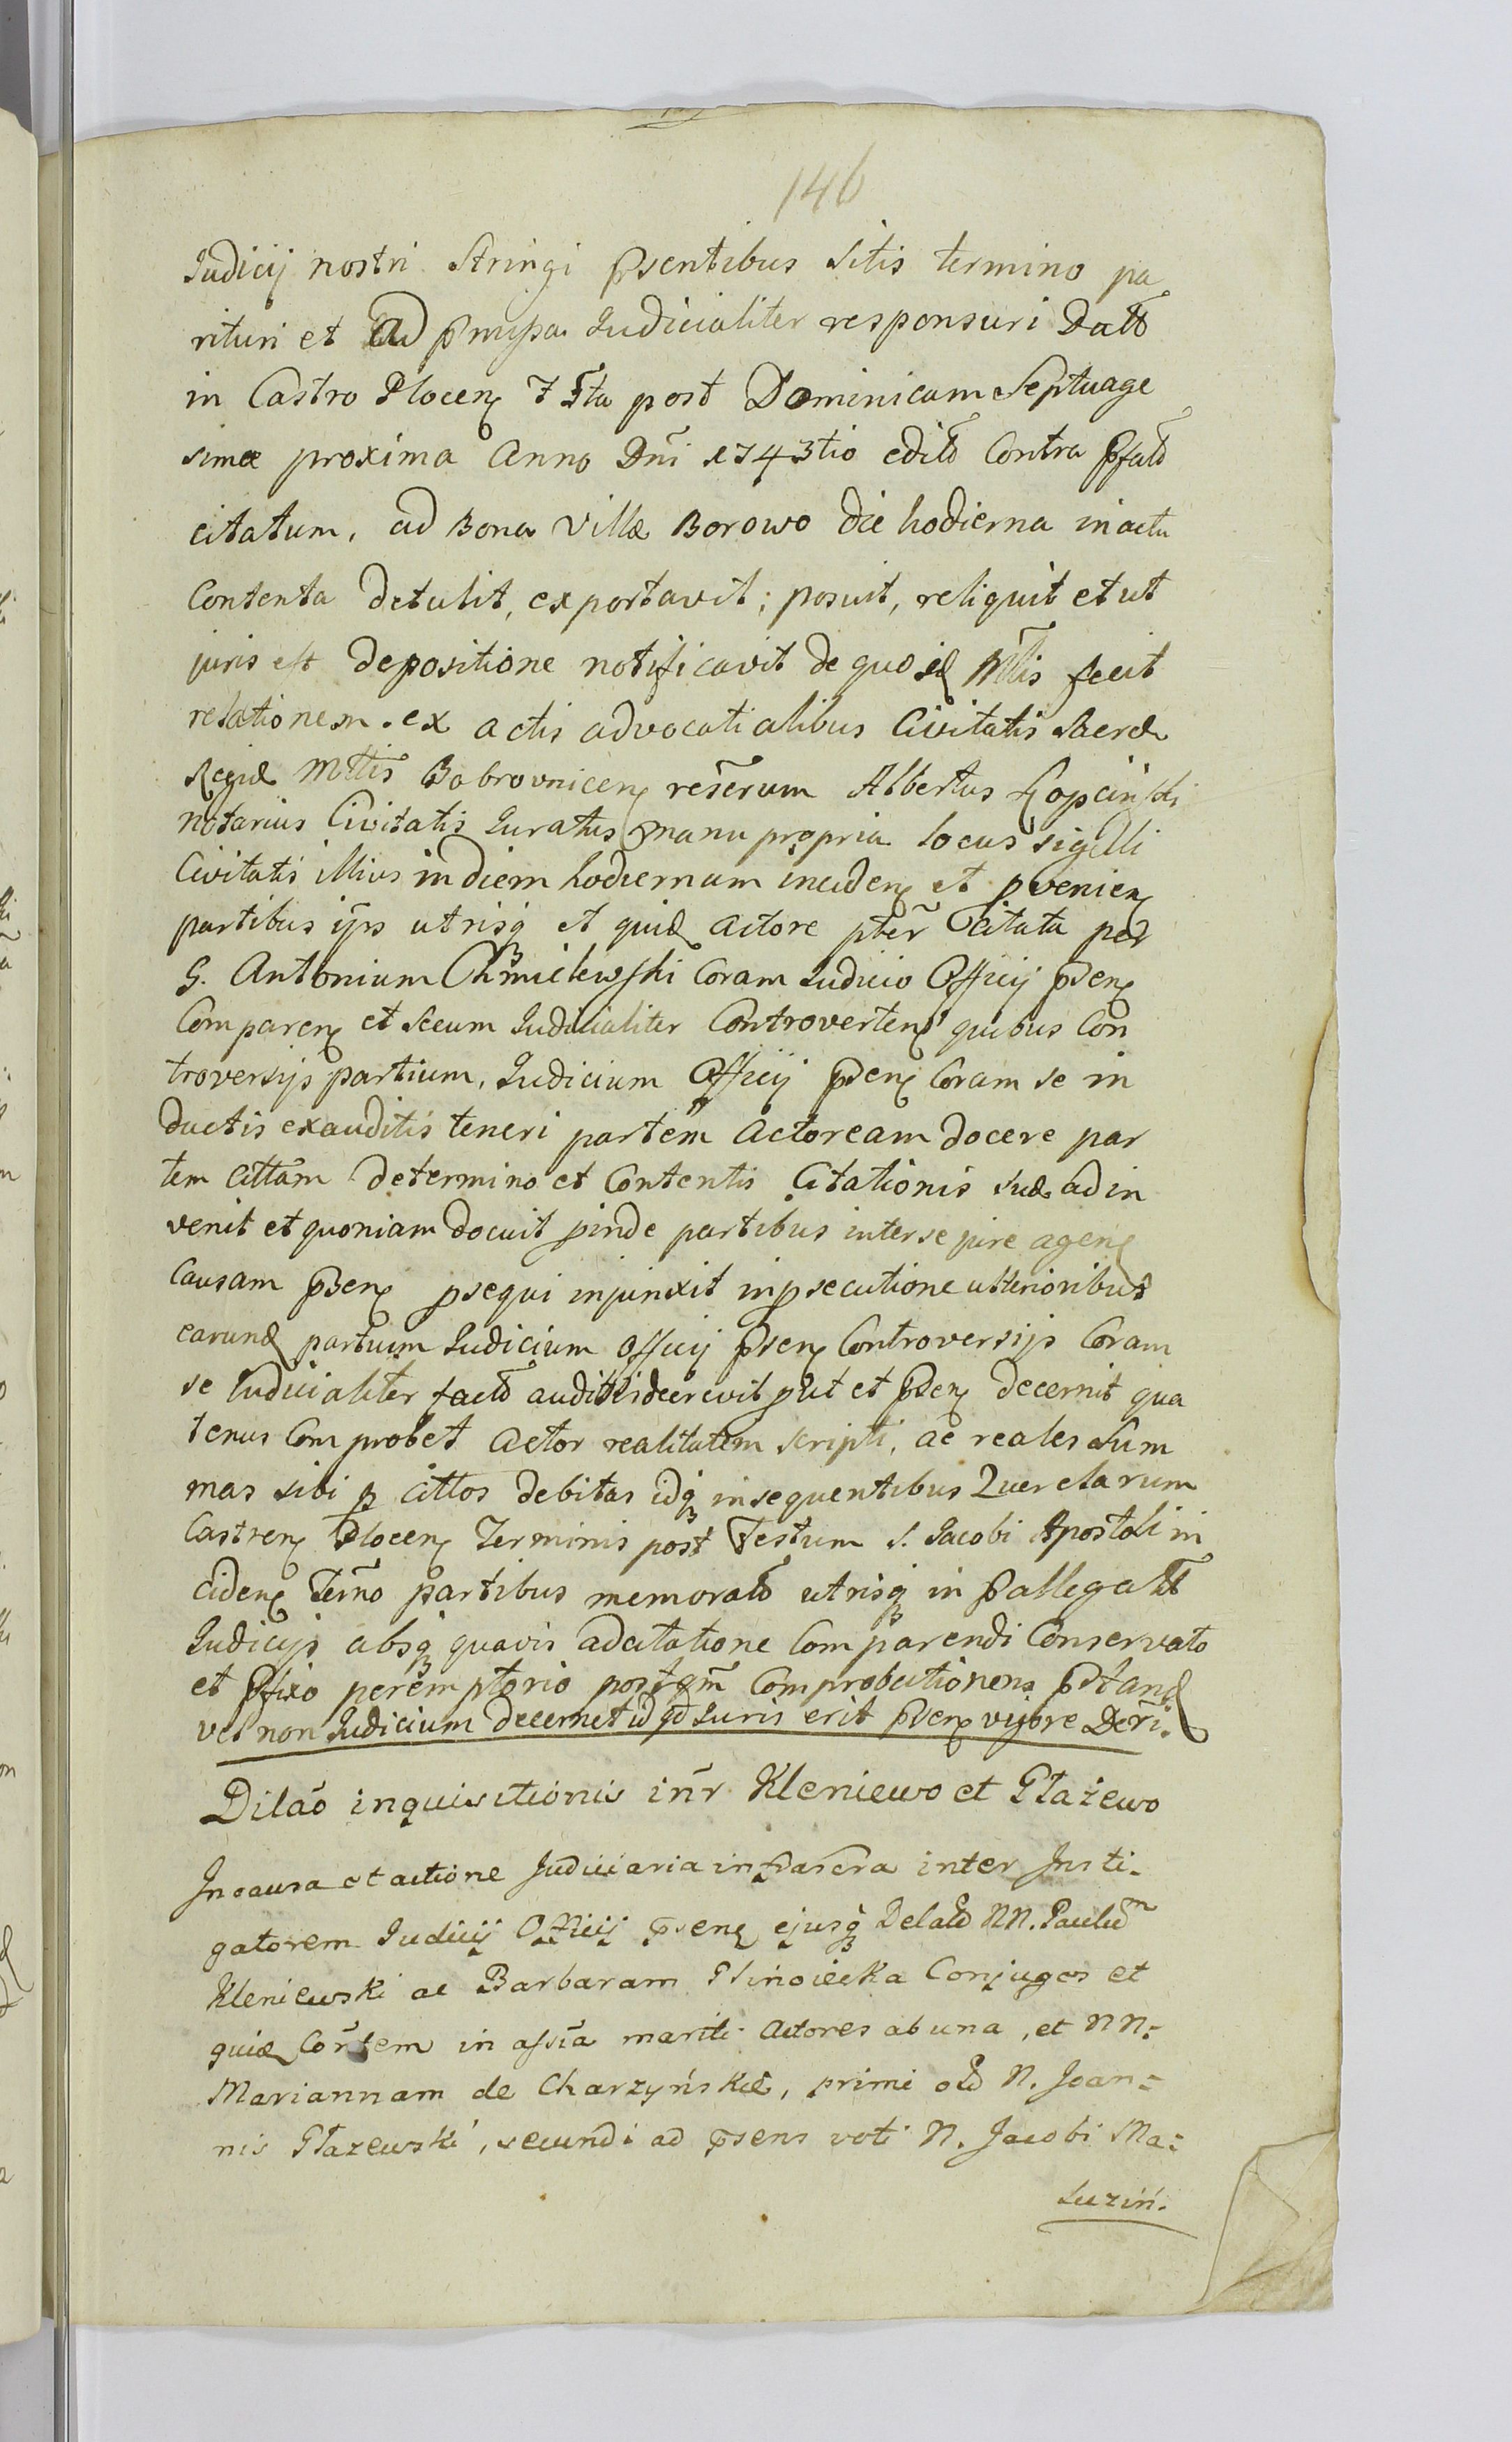 146
Judicij nostri stringi psentibus sitis termino pa
rituri et ad pmissa Judicialiter responsuri Datt
in Castro Plocen 7 5ta post Dominicam Septuage
simæ proxima Anno Dni 1743tio edito Contra pfato
citatum, ad Bona Villæ Borowo die hodierna in actu
Contenta detulit, exportavit, posuit, reliquit et ut
juris est depositione notificavit de quo id Mtlis fecit
relationem. ex actis advocatialibus Civitatis Sacræ
Regiæ Mttis Bobrovnicen reserum Albertus Łopciński
notarius Civitatis Juratus manu propria locus sigilli
Civitatis illius in diem hodiernam inciden et pvenien
partibus ijs utrisq et quid Actore pter Citata per
G. Antonium Chmielewski Coram Judicio Officij psen
Comparen et secum Judicialiter Controverten quibus Con
troversijs partium, Judicium Officij psen Coram se in
ductis exauditis teneri partem Actoream docere par
tem Cittam de termino et Contentis Citationis suæ adin
venit et quoniam docuit pinde partibus inter se jure agen
Causam psen psequi injunxit in psecutione ulterioribus
earund partium Judicium Officij psen Controversijs Coram
se Judicialiter facto auditis decrevit put et psen decernit qua
tenus Comprobet Actor realitatem scripti, ac reales Sum
mas sibi p cittos debitas idq in sequentibus Querelarum
Castren Plocen Terminis post Festum S. Jacobi Apostoli in
ciden Terno partibus memorato utrisq in pallegatt
Judicijs absq quavis adcitatione Comparendi Conservato
et pfixo peremptorio postqm Comprobationem pstand
vel non Judicium decernet id qd Juris erit psen vigore Deri.
Dilao inquisitionis inr Kleniewo et Głażewo
In causa et actione Judiciaria infrascra inter Insti-
gatorem Judicij Officij psen ejusq Delato NN. Paulum
Kleniewski ac Barbaram Glinoiecka Conjuges et
quid Contem in assia mariti Actores ab una, et NN:
Mariannam de Charzyńskie, primi olo N. Joan=
nis Głażewski, secundi ad psens voti N. Jacobi Ma=
luziń.